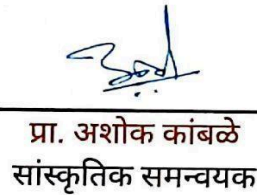 प्रा. अशोक कांबळे
सांस्कृतिक समन्वयक